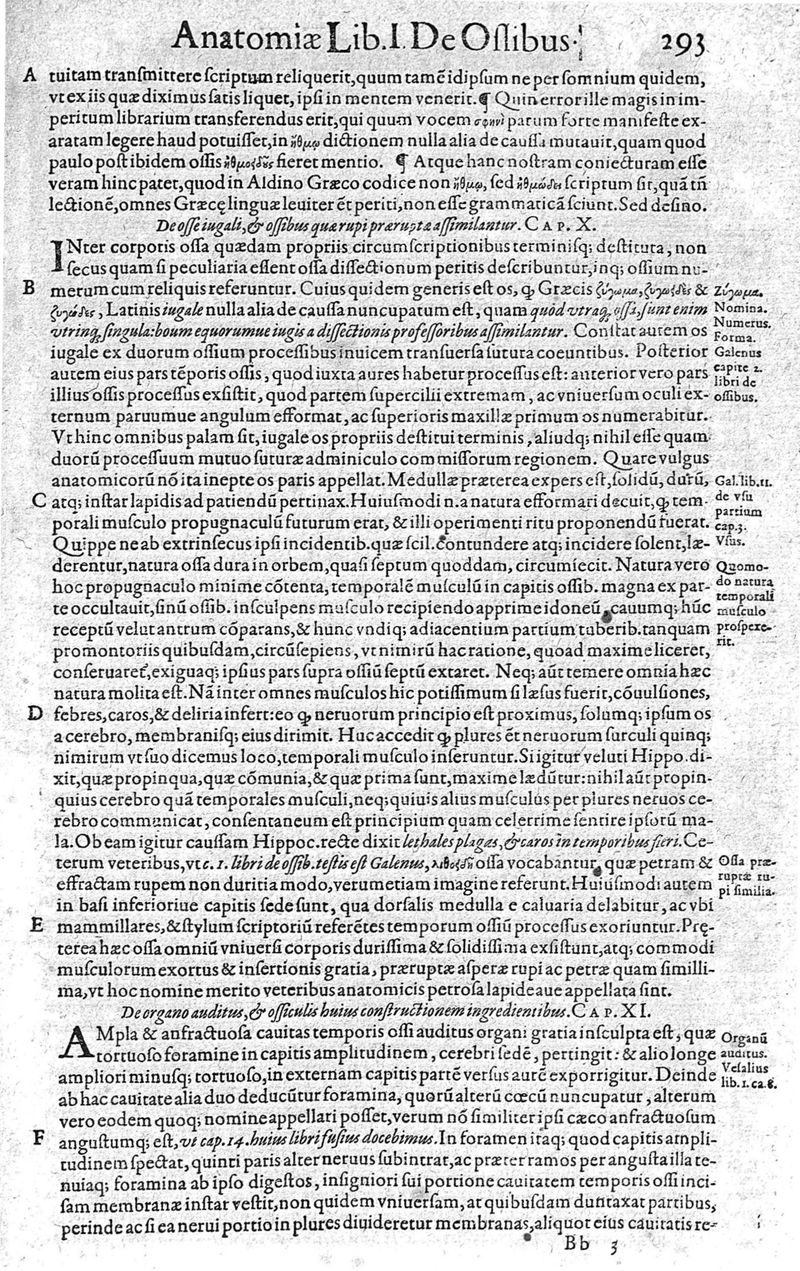 Anatomiæ Lib. I. De Ossibus. 293
A tuitam transmittere scriptum reliquerit, quum tamē idipsum ne per somnium quidem,
vt ex iis quæ diximus satis liquet, ipsi in mentem venerit. ¶ Quin error ille magis in im-
peritum librarium transferendus erit, qui quum vocem σφηνὶ parum forte manifeste ex-
aratam legere haud potuisset, in ἠθμῳ dictionem nulla alia de caussa mutauit, quam quod
paulo post ibidem ossis ἠθμοειδοῦς fieret mentio. ¶ Atque hanc nostram coniecturam esse
veram hinc patet, quod in Aldino Græco codice non ἠθμῳ, sed ἠθμώδει scriptum sit, quā tñ
lectionē, omnes Græcę linguæ leuiter ēt periti, non esse grammaticā sciunt. Sed desino.
De osse iugali, & ossibus quæ rupi præruptæ assimilantur. CAP. X.
INter corporis ossa quædam propriis circumscriptionibus terminisq; destituta, non
secus quam si peculiaria essent ossa dissectionum peritis describuntur, inq; ossium nu-
B merum cum reliquis referuntur. Cuius quidem generis est os, ꝙ Græcis ζύγωμα, ζυγοειδὲς &
Ζύγωμα.
ζυγώδες, Latinis iugale nulla alia de caussa nuncupatum est, quam quod vtraq; ossa, sunt enim
Nomina.
vtrinq; singula: boum equorumue iugis a dissectionis professoribus assimilantur. Constat autem os
Numerus.
Forma.
iugale ex duorum ossium processibus inuicem transuersa sutura coeuntibus. Posterior
Galenus
autem eius pars tēporis ossis, quod iuxta aures habetur processus est: anterior vero pars
capite 2.
libri de
illius ossis processus exsistit, quod partem supercilii extremam, ac vniuersum oculi ex-
ossibus.
ternum paruumue angulum efformat, ac superioris maxillæ primum os numerabitur.
Vt hinc omnibus palam sit, iugale os propriis destitui terminis, aliudq; nihil esse quam
duorū processuum mutuo suturæ adminiculo commissorum regionem. Quare vulgus
anatomicorū nō ita inepte os paris appellat. Medullæ præterea expers est, solidū, durū,
Gal. lib. 11.
C atq; instar lapidis ad patiendū pertinax. Huiusmodi n. a natura efformari decuit, ꝙ tem-
de vsu
partium
porali musculo propugnaculū futurum erat, & illi operimenti ritu proponendū fuerat.
cap. 3.
Quippe ne ab extrinsecus ipsi incidentib. quæ scil. contundere atq; incidere solent, læ-
Vsus.
derentur, natura ossa dura in orbem, quasi septum quoddam, circumiecit. Natura vero
Quomo-
hoc propugnaculo minime cōtenta, temporalē musculū in capitis ossib. magna ex par-
do natura
temporali
te occultauit, sinū ossib. insculpens musculo recipiendo apprime idoneū, cauumq; hūc
musculo
receptū velut antrum cōparans, & hunc vndiq; adiacentium partium tuberib. tanquam
prospexe-
promontoriis quibusdam, circūsepiens, vt nimirū hac ratione, quoad maxime liceret,
rit.
conseruaret̄, exiguaq; ipsius pars supra ossiū septū extaret. Neq; aūt temere omnia hæc
natura molita est. Nā inter omnes musculos hic potissimum si læsus fuerit, cōuulsiones,
D febres, caros, & deliria infert: eo ꝙ neruorum principio est proximus, solumq; ipsum os
a cerebro, membranisq; eius dirimit. Huc accedit ꝙ plures ēt neruorum surculi quinq;
nimirum vt suo dicemus loco, temporali musculo inseruntur. Si igitur veluti Hippo. di-
xit, quæ propinqua, quæ cōmunia, & quæ prima sunt, maxime lædūtur: nihil aūt propin-
quius cerebro quā temporales musculi, neq; quiuis alius musculus per plures neruos ce-
rebro communicat, consentaneum est principium quam celerrime sentire ipsorū ma-
la. Ob eam igitur caussam Hippoc. recte dixit lethales plagas, & caros in temporibus fieri. Ce-
terum veteribus, vt c. 1. libri de ossib. testis est Galenus, λιθοειδῆ ossa vocabantur, quæ petram &
Ossa præ-
effractam rupem non duritia modo, verum etiam imagine referunt. Huiusmodi autem
ruptæ ru-
pi similia.
in basi inferioriue capitis sede sunt, qua dorsalis medulla e caluaria delabitur, ac vbi
E mammillares, & stylum scriptoriū referētes temporum ossiū processus exoriuntur. Prę-
terea hæc ossa omniū vniuersi corporis durissima & solidissima exsistunt, atq; commodi
musculorum exortus & insertionis gratia, præruptæ asperæ rupi ac petræ quam simili-
ma, vt hoc nomine merito veteribus anatomicis petrosa lapideaue appellata sint.
De organo auditus, & ossiculis huius constructionem ingredientibus. CAP. XI.
AMpla & anfractuosa cauitas temporis ossi auditus organi gratia insculpta est, quæ
Organū
tortuoso foramine in capitis amplitudinem, cerebri sedē, pertingit: & alio longe
auditus.
ampliori minusq; tortuoso, in externam capitis partē versus aurē exporrigitur. Deinde
Vesalius
lib. 1. ca. 8.
ab hac cauitate alia duo deducūtur foramina, quorū alterū cœcū nuncupatur, alterum
vero eodem quoq; nomine appellari posset, verum nō similiter ipsi cæco anfractuosum
F angustumq; est, vt cap. 14. huius libri fusius docebimus. In foramen itaq; quod capitis ampli-
tudinem spectat, quinti paris alter neruus subintrat, ac præter ramos per angusta illa te-
nuiaq; foramina ab ipso digestos, insigniori sui portione cauitatem temporis ossi inci-
sam membranæ instar vestit, non quidem vniuersam, at quibusdam duntaxat partibus,
perinde ac si ea nerui portio in plures diuideretur membranas, aliquot eius cauitatis re-
Bb 3